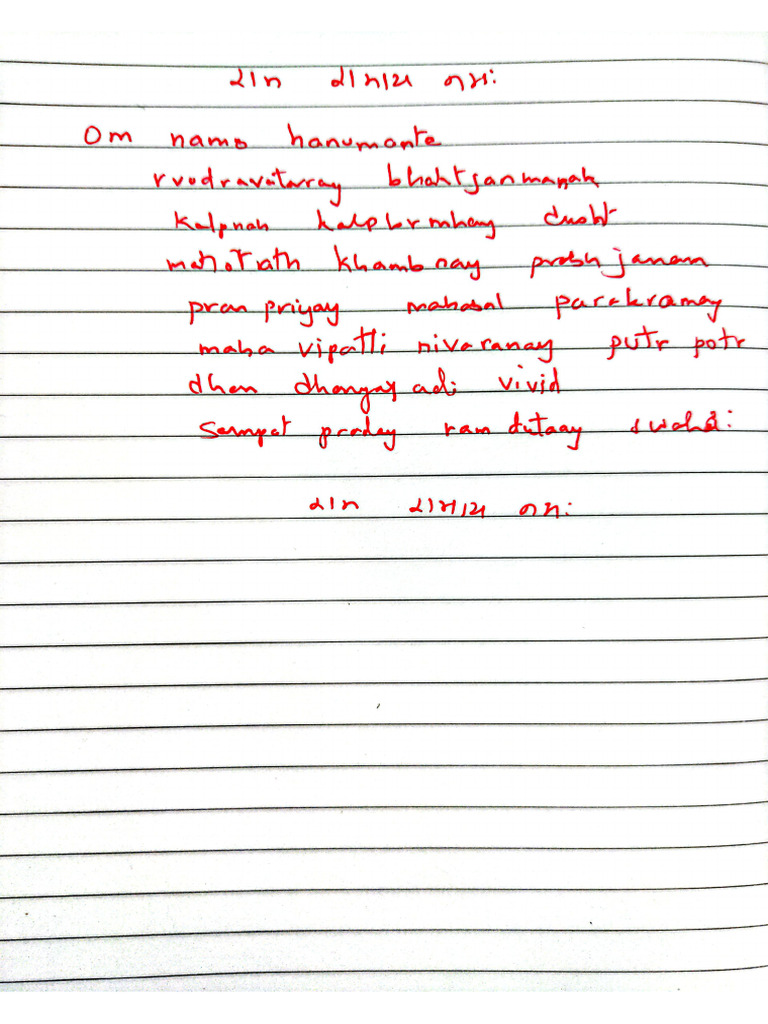 રામ રામાય નમઃ
Om namo hanumante
rvudravataray bhaktjanmanah
kalpnah kalpbrmhay dusht
manorath khambnay prabhjanam
pran priyay mahabal parakramay
maha vipatti nivaranay putr potr
dhan dhanyay adi vivid
sampat praday ram dutaay swaha:
રામ રામાય નમઃ